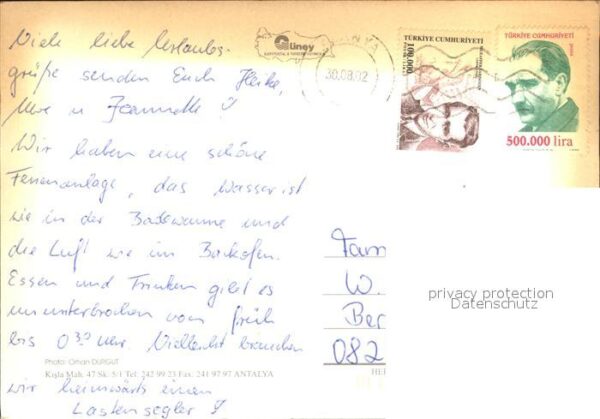 Viele liebe Urlaubs-
grüße senden Euch Heike,
Uwe u Jeannette!
Wir haben eine schöne
Ferienanlage, das Wasser ist
wie in der Badewanne und
die Luft wie im Backofen.
Essen und Trinken gibt es
ununterbrochen von früh
bis 0³⁰ Uhr. Vielleicht brauchen
wir heimwärts einen
Lastensegler!
Photo: Orhan DURGUT
Kışla Mah. 47 Sk. 5/1 Tel: 242 99 23 Fax: 241 97 97 ANTALYA
Güney
30.08.02
TÜRKİYE CUMHURİYETİ
100.000
TÜRKİYE CUMHURİYETİ
500.000 lira
Fam
W.
Ber
082
privacy protection
Datenschutz